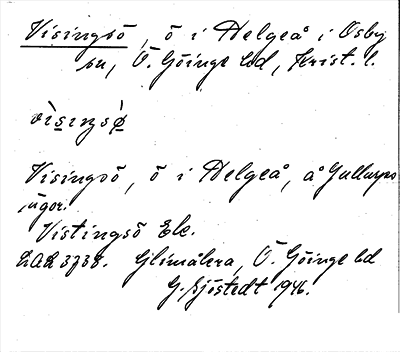 Visingsö, ö i Helgeå i Osby
sn, Ö. Göinge hd, Krist. l.
vìsiŋsø̀
Visingsö, ö i Helgeå, å Gullarps
ägor.
Vistingsö Ek.
LAL 3738. Glimåkra, Ö. Göinge hd
G. Sjöstedt 1946.